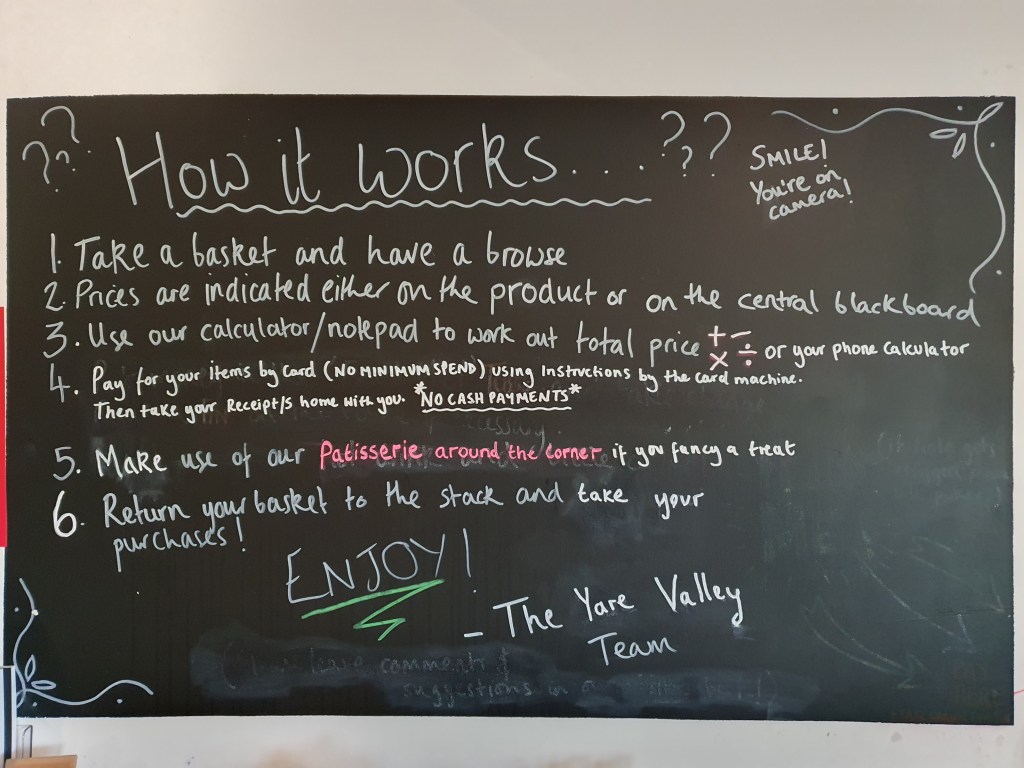 ?? ?
How it works....???
SMILE!
You're on
camera!
1. Take a basket and have a browse
2. Prices are indicated either on the product or on the central blackboard
3. Use our calculator/notepad to work out total price + - × ÷ or your phone calculator
4. Pay for your items by card (NO MINIMUM SPEND) using instructions by the card machine.
Then take your Receipt/s home with you. *NO CASH PAYMENTS*
5. Make use of our Patisserie around the corner if you fancy a treat
6. Return your basket to the stack and take your
purchases!
ENJOY!
- The Yare Valley
Team
leave comments &
suggestions in